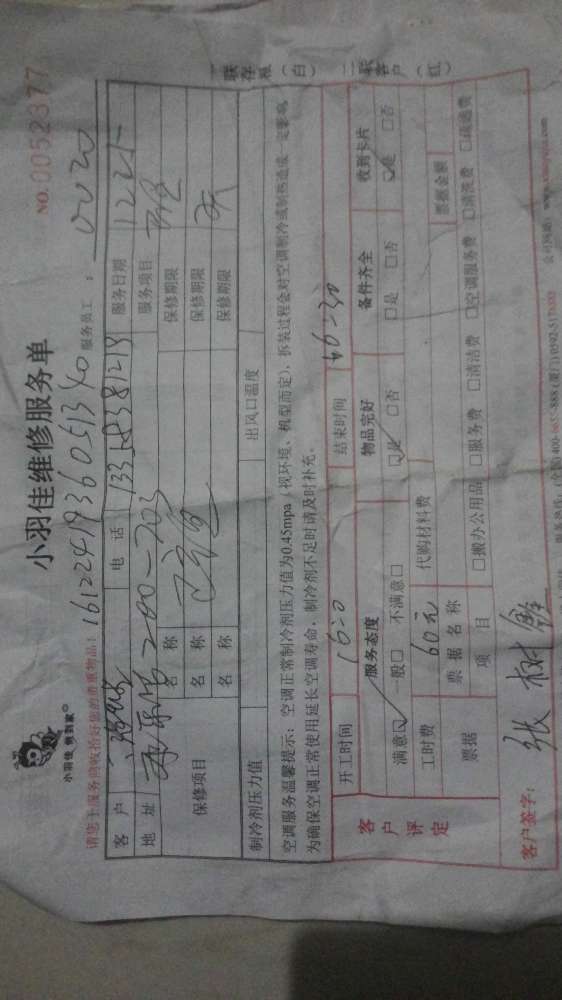 小羽佳 到家
小羽佳维修服务单
NO.0052377
161224193605134o
服务员工：
0020
请您于服务前收拾好您的贵重物品：
客户
电话
13358381213
服务日期
12.25
地址
200-703
服务项目
保修项目
名称
保修期限
名称
保修期限
名称
保修期限
制冷剂压力值
出风口温度
空调服务温馨提示：空调正常制冷剂压力值为0.45mpa（视环境、机型而定），拆装过程会对空调制冷或制热造成一定影响，
为确保空调正常使用延长空调寿命，制冷剂不足时请及时补充。
开工时间
16:0
结束时间
16:30
客户评定
服务态度
物品完好
备件齐全
收到卡片
满意☑ 一般□ 不满意□
☑是 □否
□是 □否
☑是 □否
工时费
60元
代购材料费
票据
票据名称
票据金额
项目
□搬办公用品 □服务费 □清洁费 □空调服务费 □清洗费 □疏通费
客户签字：
张树
一联存根（白） 二联客户（红）